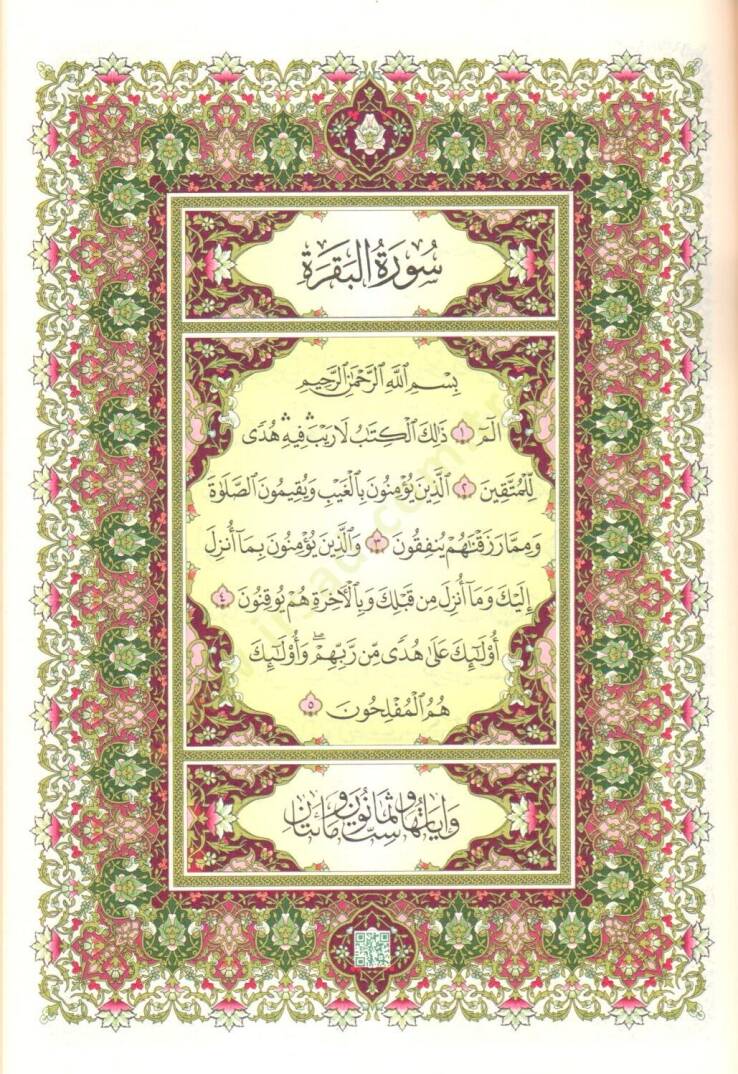 سُورَةُ الْبَقَرَةِ
بِسْمِ ٱللَّهِ ٱلرَّحْمَٰنِ ٱلرَّحِيمِ
الٓمٓ ١ ذَٰلِكَ ٱلْكِتَٰبُ لَا رَيْبَۛ فِيهِۛ هُدًى
لِّلْمُتَّقِينَ ٢ ٱلَّذِينَ يُؤْمِنُونَ بِٱلْغَيْبِ وَيُقِيمُونَ ٱلصَّلَوٰةَ
وَمِمَّا رَزَقْنَٰهُمْ يُنفِقُونَ ٣ وَٱلَّذِينَ يُؤْمِنُونَ بِمَآ أُنزِلَ
إِلَيْكَ وَمَآ أُنزِلَ مِن قَبْلِكَ وَبِٱلْأَخِرَةِ هُمْ يُوقِنُونَ ٤
أُوْلَٰٓئِكَ عَلَىٰ هُدًى مِّن رَّبِّهِمْۖ وَأُوْلَٰٓئِكَ
هُمُ ٱلْمُفْلِحُونَ ٥
وَآيَاتُهَا سِتٌّ وَثَمَانُونَ وَمِائَتَانِ